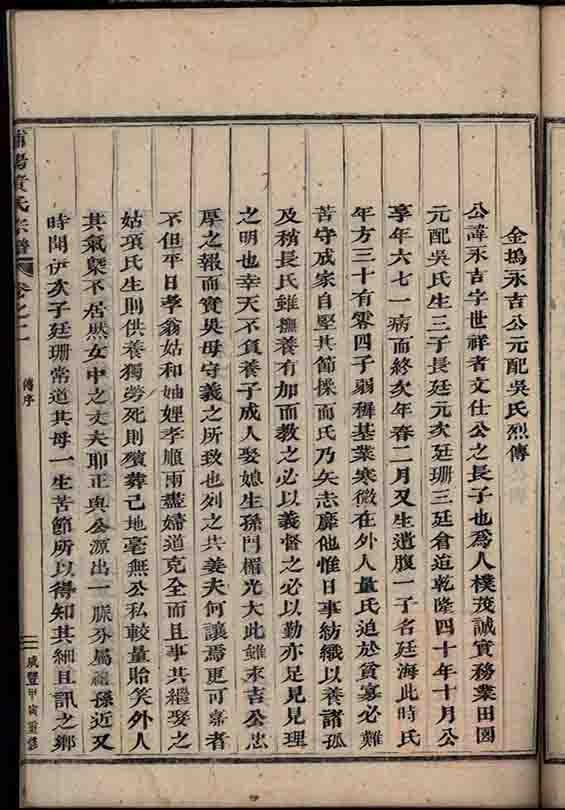 金塢永吉公元配吳氏烈傳
公諱永吉字世祥者文仕公之長子也爲人樸茂誠實務業田園
元配吳氏生三子長廷元次廷珊三廷會迨乾隆四十年十月公
享年六七一病而終次年春二月又生遺腹一子名廷海此時氏
年方三十有零四子弱穉基業寒微在外人量氏迫於貧寡必難
苦守成家自堅其節操而氏乃矢志靡他惟日事紡織以養諸孤
及稍長氏雖撫養有加而教之必以義督之必以勤亦足見見理
之明也幸天不負養子成人娶媳生孫門楣光大此雖永吉公忠
厚之報而實吳母守義之所致也列之共姜夫何讓焉更可嘉者
不但平日孝翁姑和妯娌孝順兩盡婦道克全而且事其繼娶之
姑項氏生則供養獨勞死則殯葬己地毫無公私較量貽笑外人
其氣槩不居然女中之丈夫耶正與公源出一脈分屬孫近又
時聞伊次子廷珊常道其母一生苦節所以得知其細且訊之鄉
浦陽黃氏宗譜 卷之二 傳序
二 咸豐甲寅重修